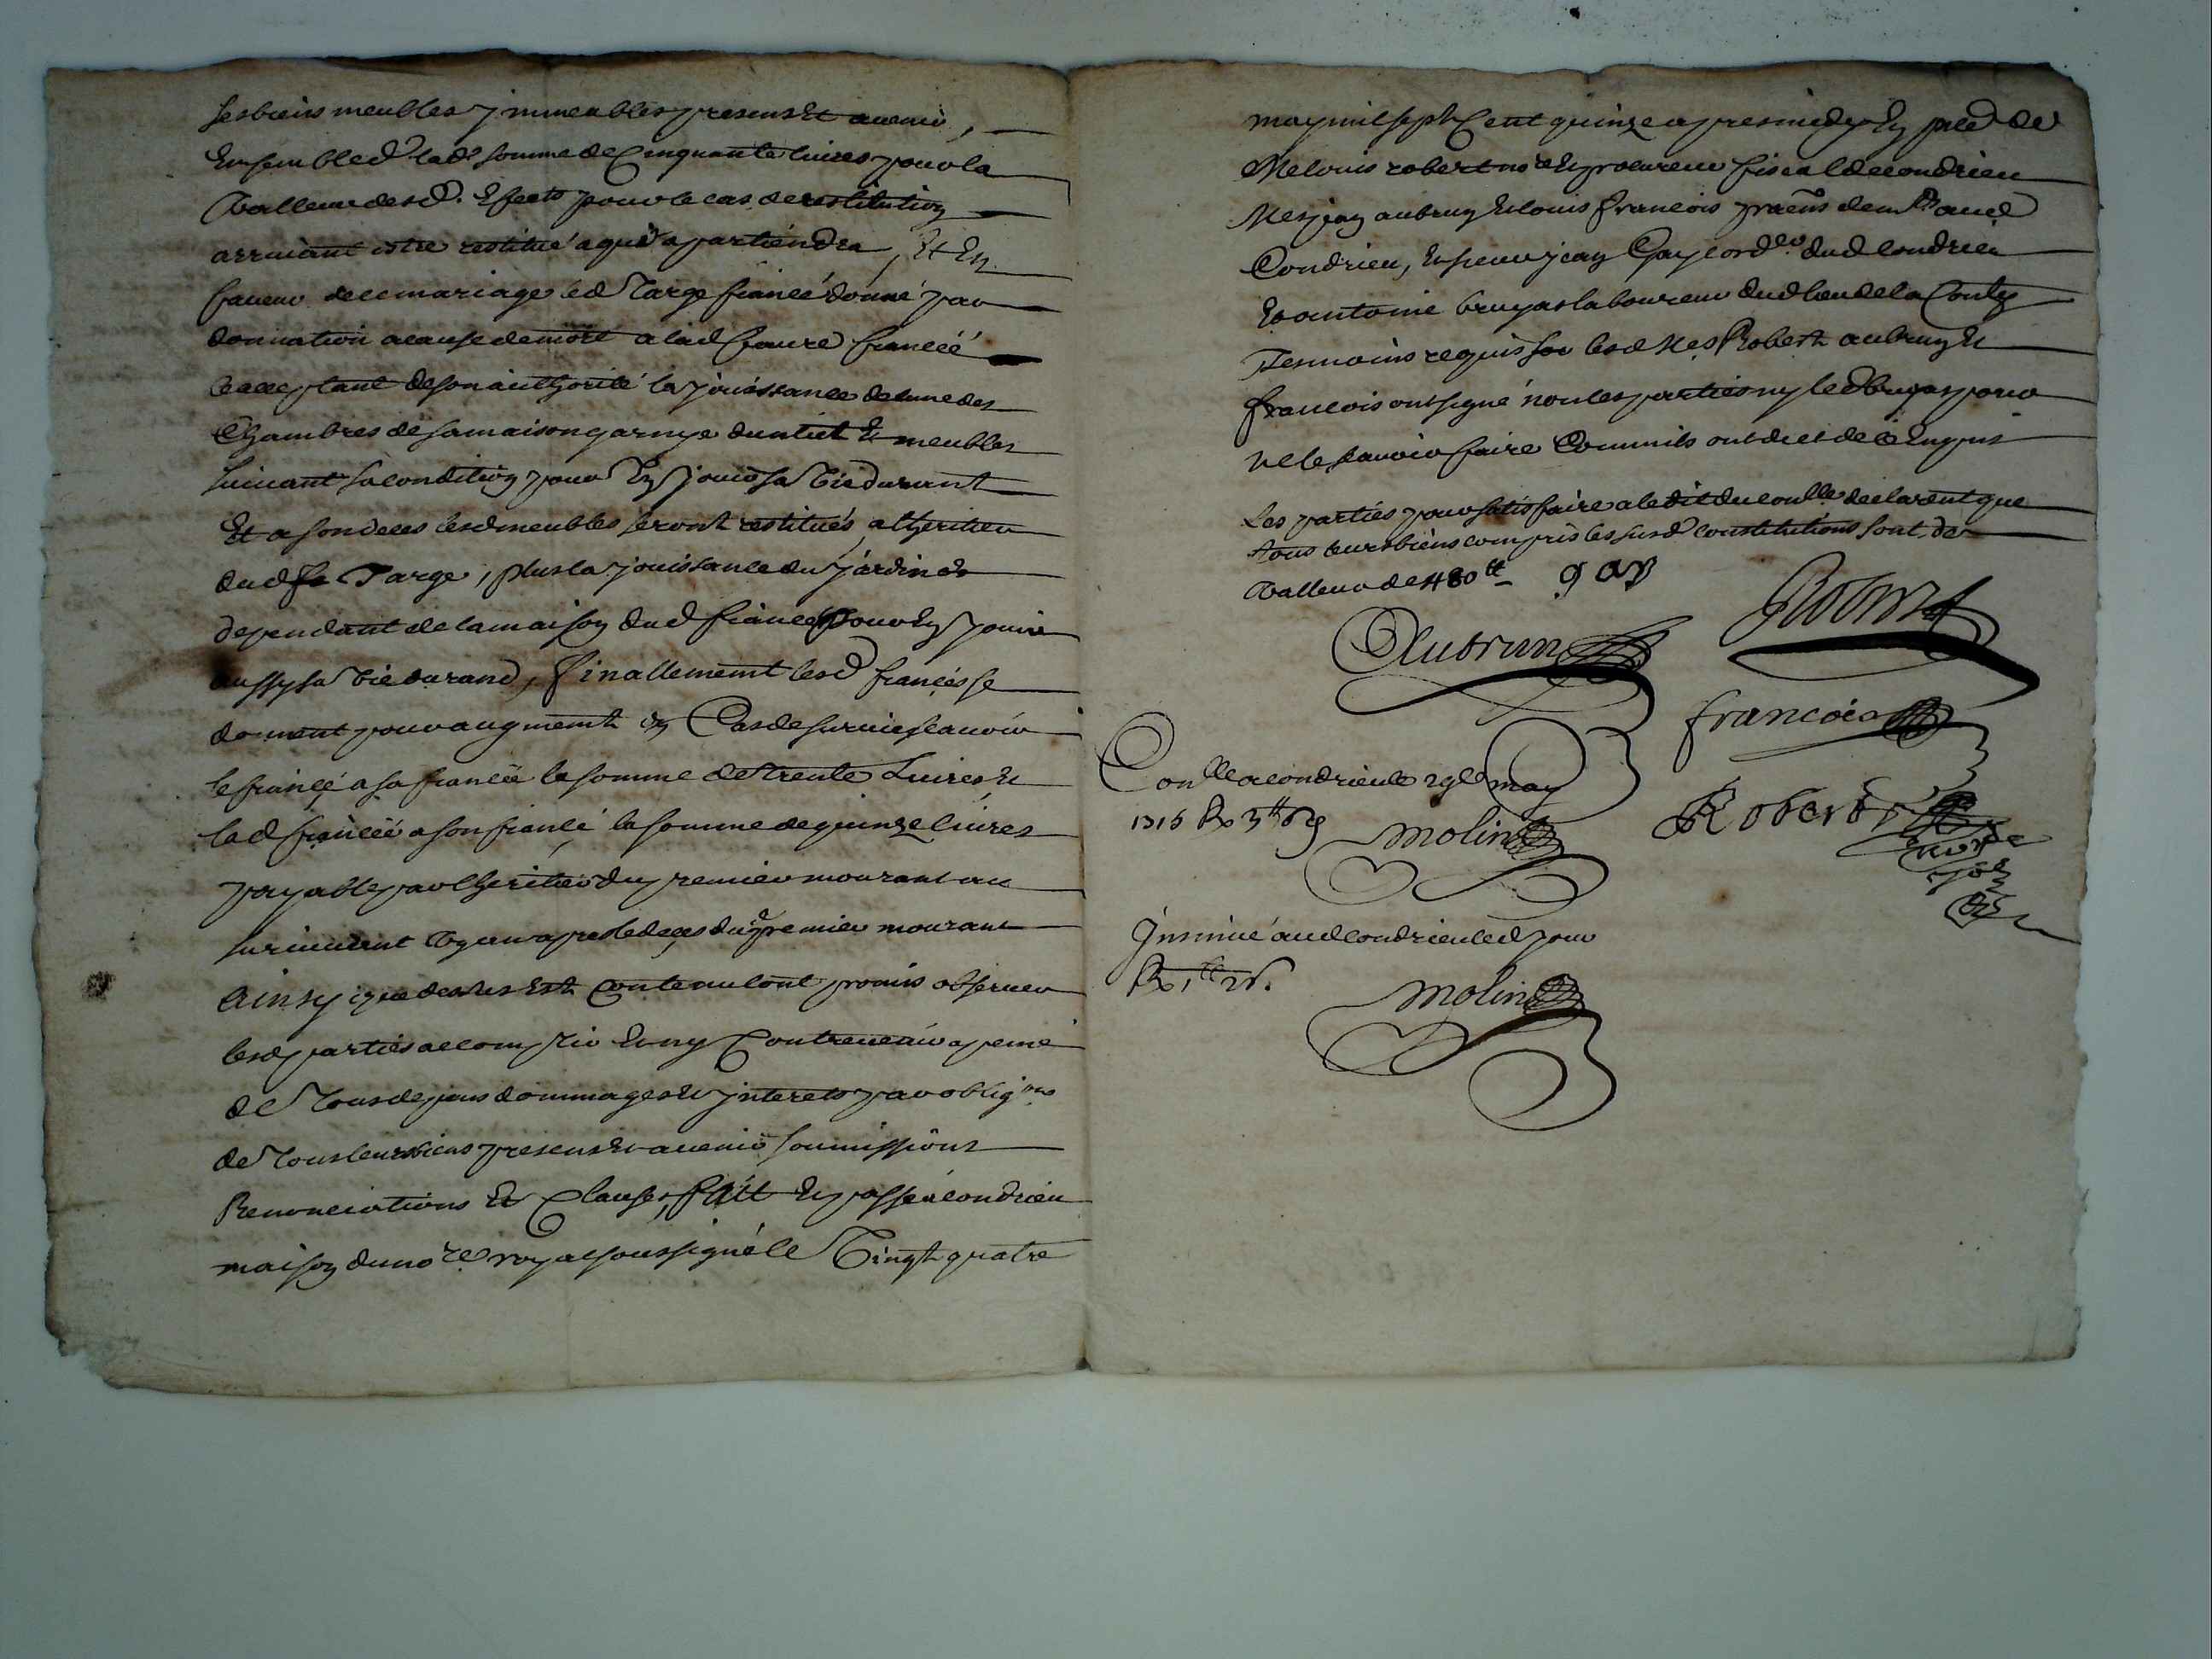 ses biens meubles jmmeubles presens et avenir,
Ensemble d. lade somme de Cinquante livres pour la
Valleur desd. Effects pour le cas de restitution
arrivant estre restitué a qui apartiendra, Et En
faveur de ce mariage led Targe fiancé donne par
donnation a cause de mort a lad faure fiancéé
acceptant de son authorité la jouissance de lune des
Chambres de sa maison garnye dun lict Et meubles
suivant sa condition pour En jouir sa vie durant
Et a son deces lesd meubles seront restitués a lheritier
dud Targe, plus la jouissance du jardin
dependant de la maison dud fiancé pour En jouir
aussy sa vie durand, finallement lesd fiancés se
donnent pour augment En Cas de survie scavoir
le fiancé a sa fiancéé la somme de trente Livres Et
lad fiancéé a son fiancé la somme de quinze livres
payable par lheritier du premier mourant au
survivant un an apres le deces dud premier mourant
Ainsy que dessus Est Contenu lont promis observer
lesd parties accomplir Et ny Contrevenir a peine
de Tous depans dommages Et jnterets par oblig.ons
de Tous leurs biens presens Et avenir soumissions
Renonciations Et Clauses, fait Et passé a condrieu
maison du no.re royal soussigné le Vingt quatre
may mil sept Cent quinze apres midy En pñce de
Me louis robert no.re Et procureur fiscal de condrieu
Mes jean aubrun Et louis francois pratiens dem.ts aud
Condrieu, Et sieur jean Gay cord.er dud Condrieu
Et antoine bruyas laboureur dud lieu de la
Tesmoins requis sou lesd Mes Robert aubrun Et
francois ont signé non les parties ny led bruyas pour
ne le scavoir faire Commils ont dit de ce Enquis
Les parties pour satisfaire a ledit du con.lle declarent que
tous leurs biens compris les susd constitutions sont de
Valleur de 480 tt gay
Aubrun Robert
francois
Con.lle a condrieu le 29e may
1715 Rx 3 tt
Molin
Robert
Jnsinué aud condrieu led jour
Rx 1 tt
Molin